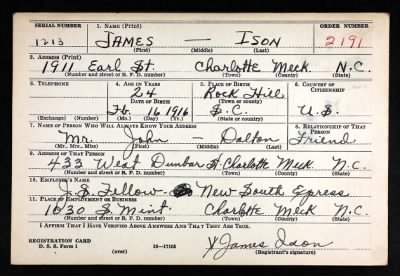 SERIAL NUMBER 1. NAME (Print) ORDER NUMBER
1213 JAMES — ISON 2191
(First) (Middle) (Last)
2. ADDRESS (Print)
1911 Earl St. Charlotte Meck N.C.
(Number and street or R. F. D. number) (Town) (County) (State)
3. TELEPHONE 4. AGE IN YEARS 5. PLACE OF BIRTH 6. COUNTRY OF CITIZENSHIP
24 Rock Hill
DATE OF BIRTH (Town or county)
Fb. 16 1916 S.C. U.S.
(Exchange) (Number) (Mo.) (Day) (Yr.) (State or country)
7. NAME OF PERSON WHO WILL ALWAYS KNOW YOUR ADDRESS 8. RELATIONSHIP OF THAT PERSON
Mr. John — Dalton Friend
(Mr., Mrs., Miss) (First) (Middle) (Last)
9. ADDRESS OF THAT PERSON
433 West Dunbar St Charlotte Meck N.C.
(Number and street or R. F. D. number) (Town) (County) (State)
10. EMPLOYER'S NAME
J.S. Fellow New South Express
11. PLACE OF EMPLOYMENT OR BUSINESS
1630 S. Mint Charlotte Meck N.C.
(Number and street or R. F. D. number) (Town) (County) (State)
I AFFIRM THAT I HAVE VERIFIED ABOVE ANSWERS AND THAT THEY ARE TRUE.
REGISTRATION CARD
D. S. S. Form 1 (over) 16—17105 James Ison
(Registrant's signature)